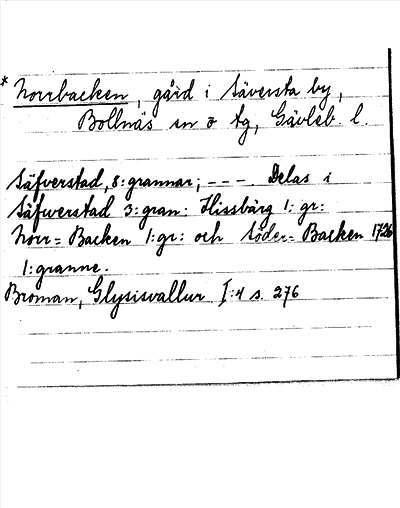 * Norrbacken, gård i Säversta by,
Bollnäs sn o tg, Gävleb. l.
Säfverstad, 8: grannar; - - - Delas i
Säfwerstad 3: gran: Hissbärg 1: gr:
Norr= Backen 1: gr: och Söder= Backen 1726
1: granne.
Broman, Glysisvallur I:4 s. 276